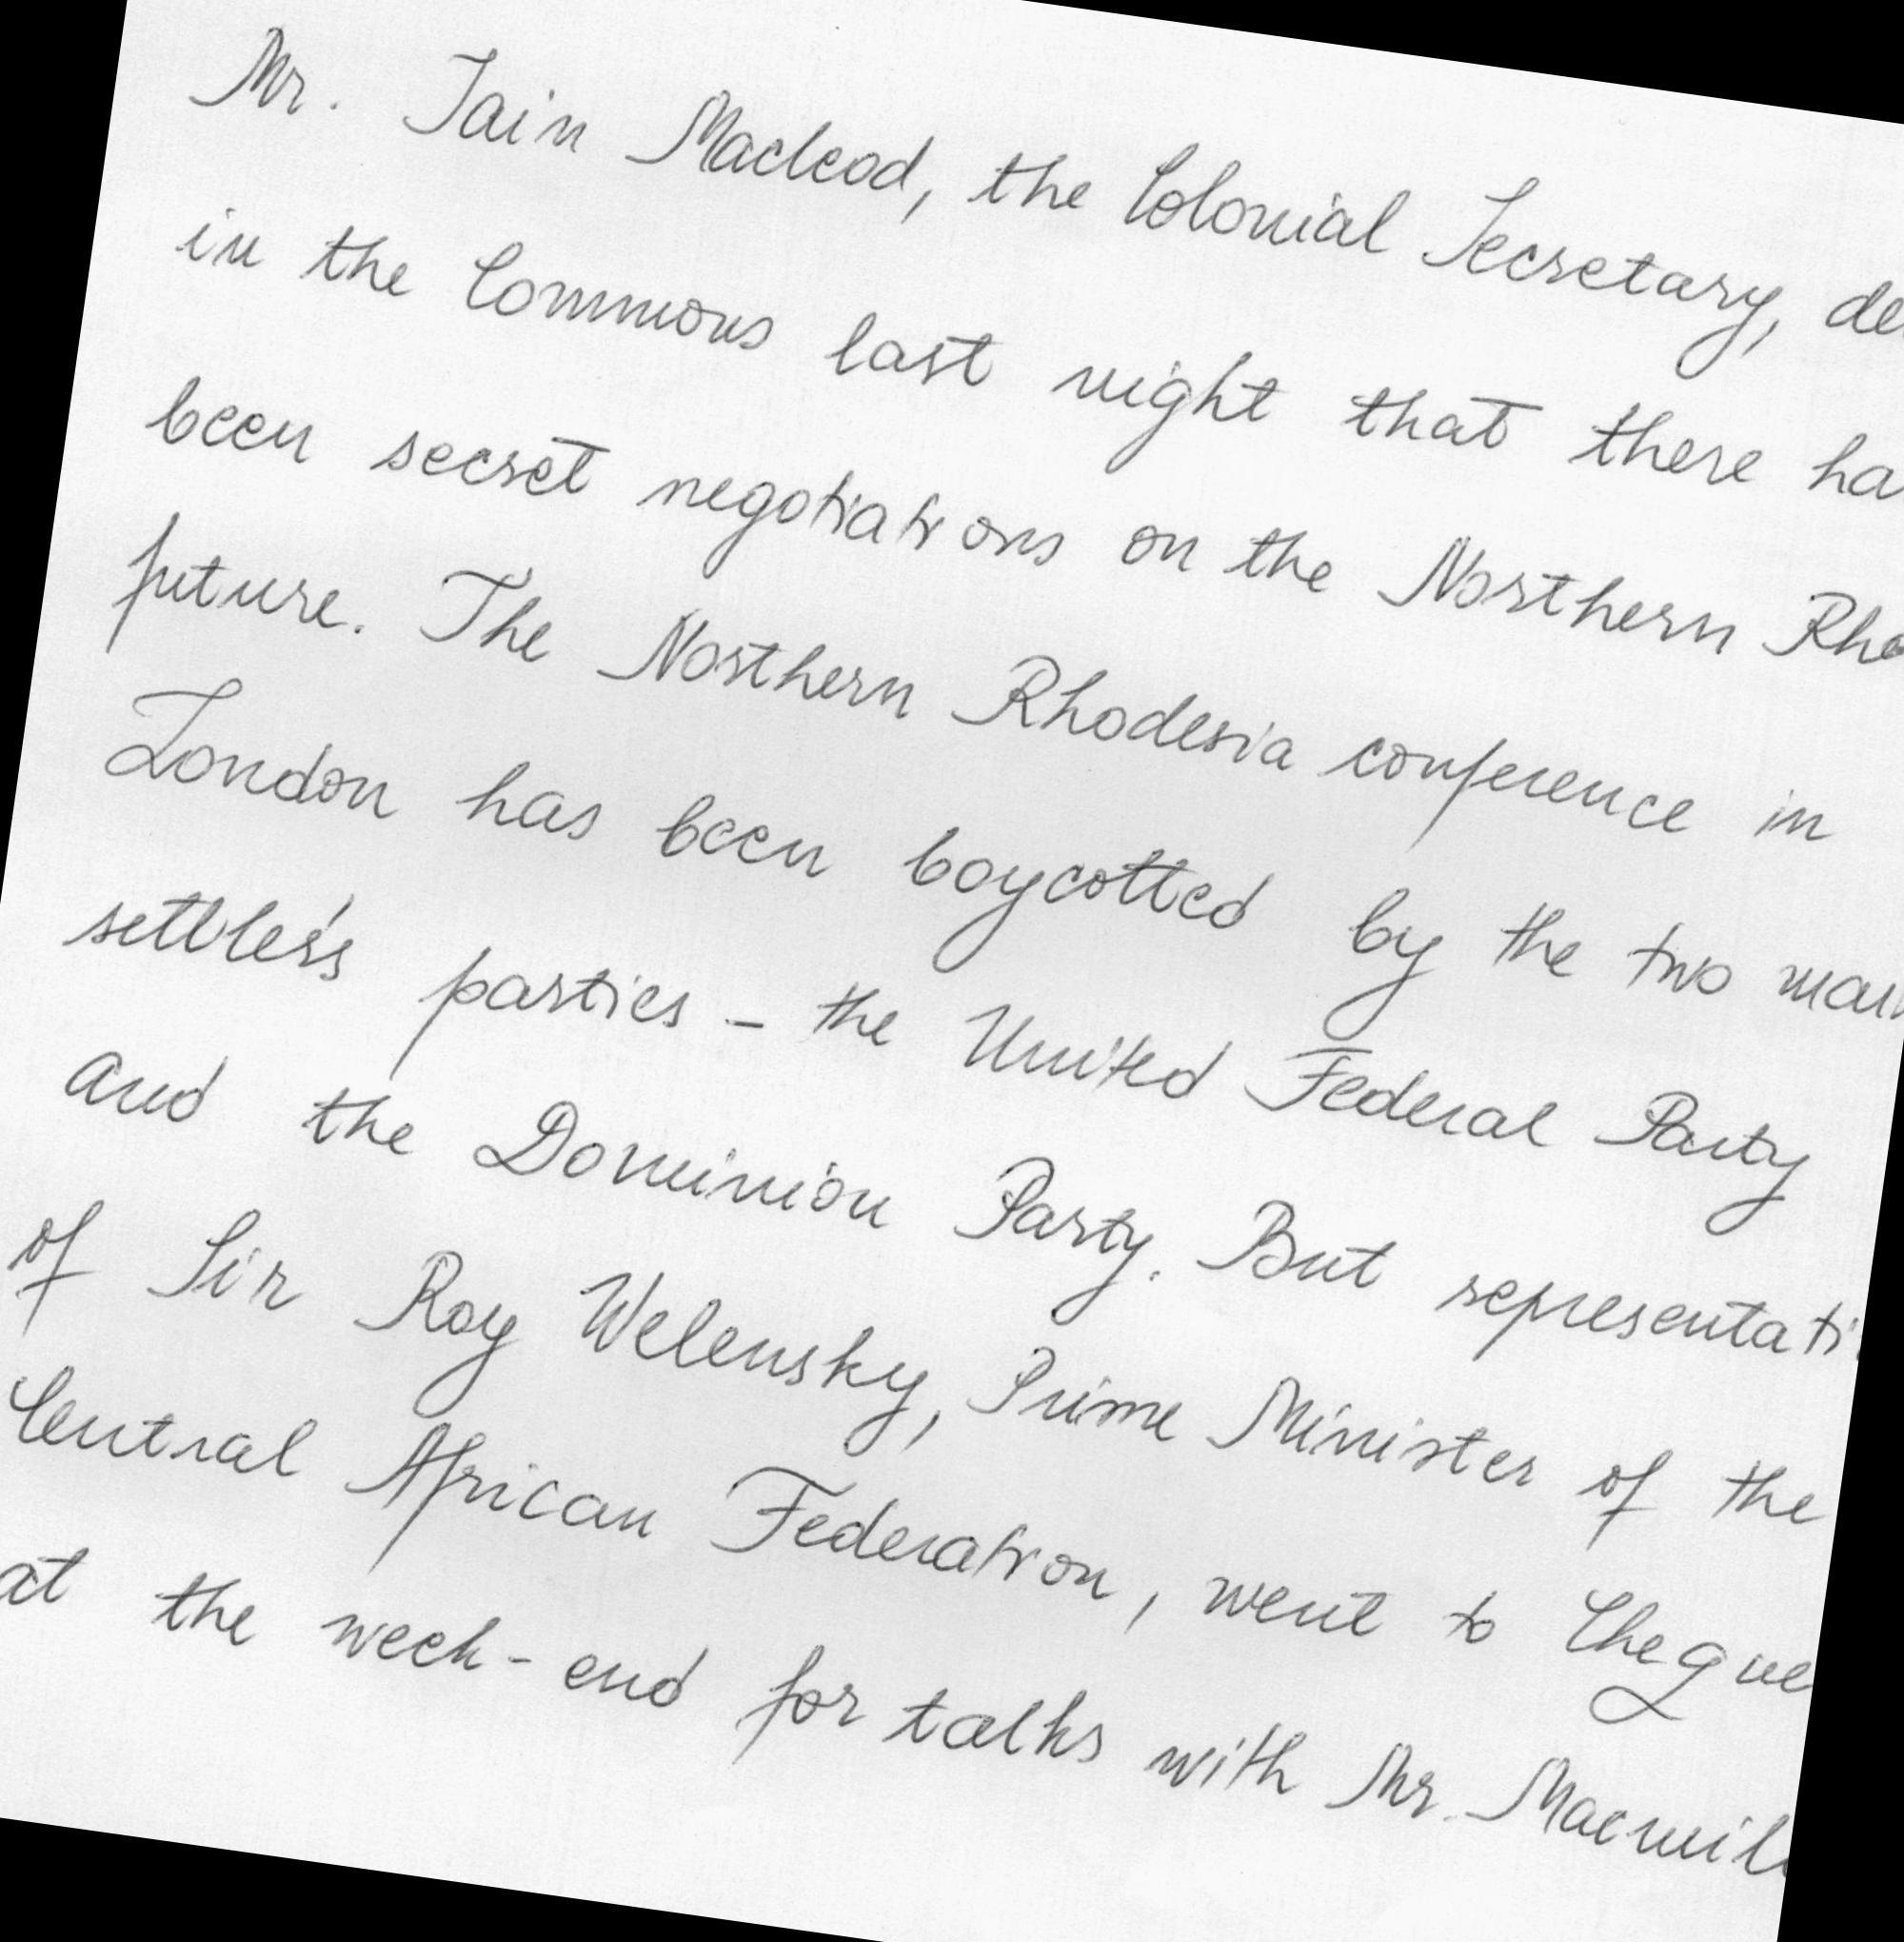 Mr. Iain Macleod, the Colonial Secretary,
in the Commons last night that there
been secret negotiations on the Northern
future. The Northern Rhodesia conference in
London has been boycotted by the two main
settler's parties - the United Federal Party
and the Dominion Party. But
of Sir Roy Welensky, Prime Minister of the
Central African Federation, went to
at the week-end for talks with Mr.